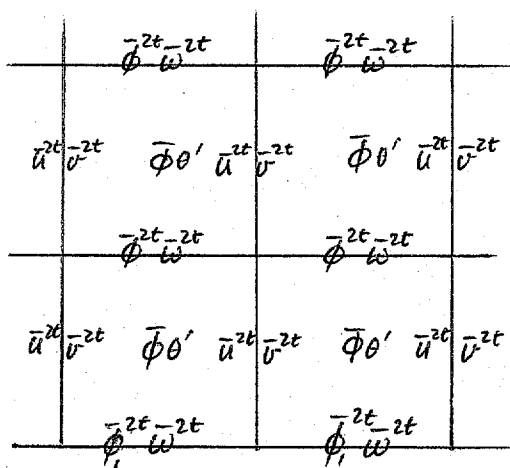 ϕ̄²ᵗ ω̄²ᵗ ϕ̄²ᵗ ω̄²ᵗ
ū²ᵗ v̄²ᵗ ϕ̄θ′ ū²ᵗ v̄²ᵗ ϕ̄θ′ ū²ᵗ v̄²ᵗ
ϕ̄²ᵗ ω̄²ᵗ ϕ̄²ᵗ ω̄²ᵗ
ū²ᵗ v̄²ᵗ ϕ̄θ′ ū²ᵗ v̄²ᵗ ϕ̄θ′ ū²ᵗ v̄²ᵗ
ϕ̄₁²ᵗ ω̄²ᵗ ϕ̄₁²ᵗ ω̄²ᵗ